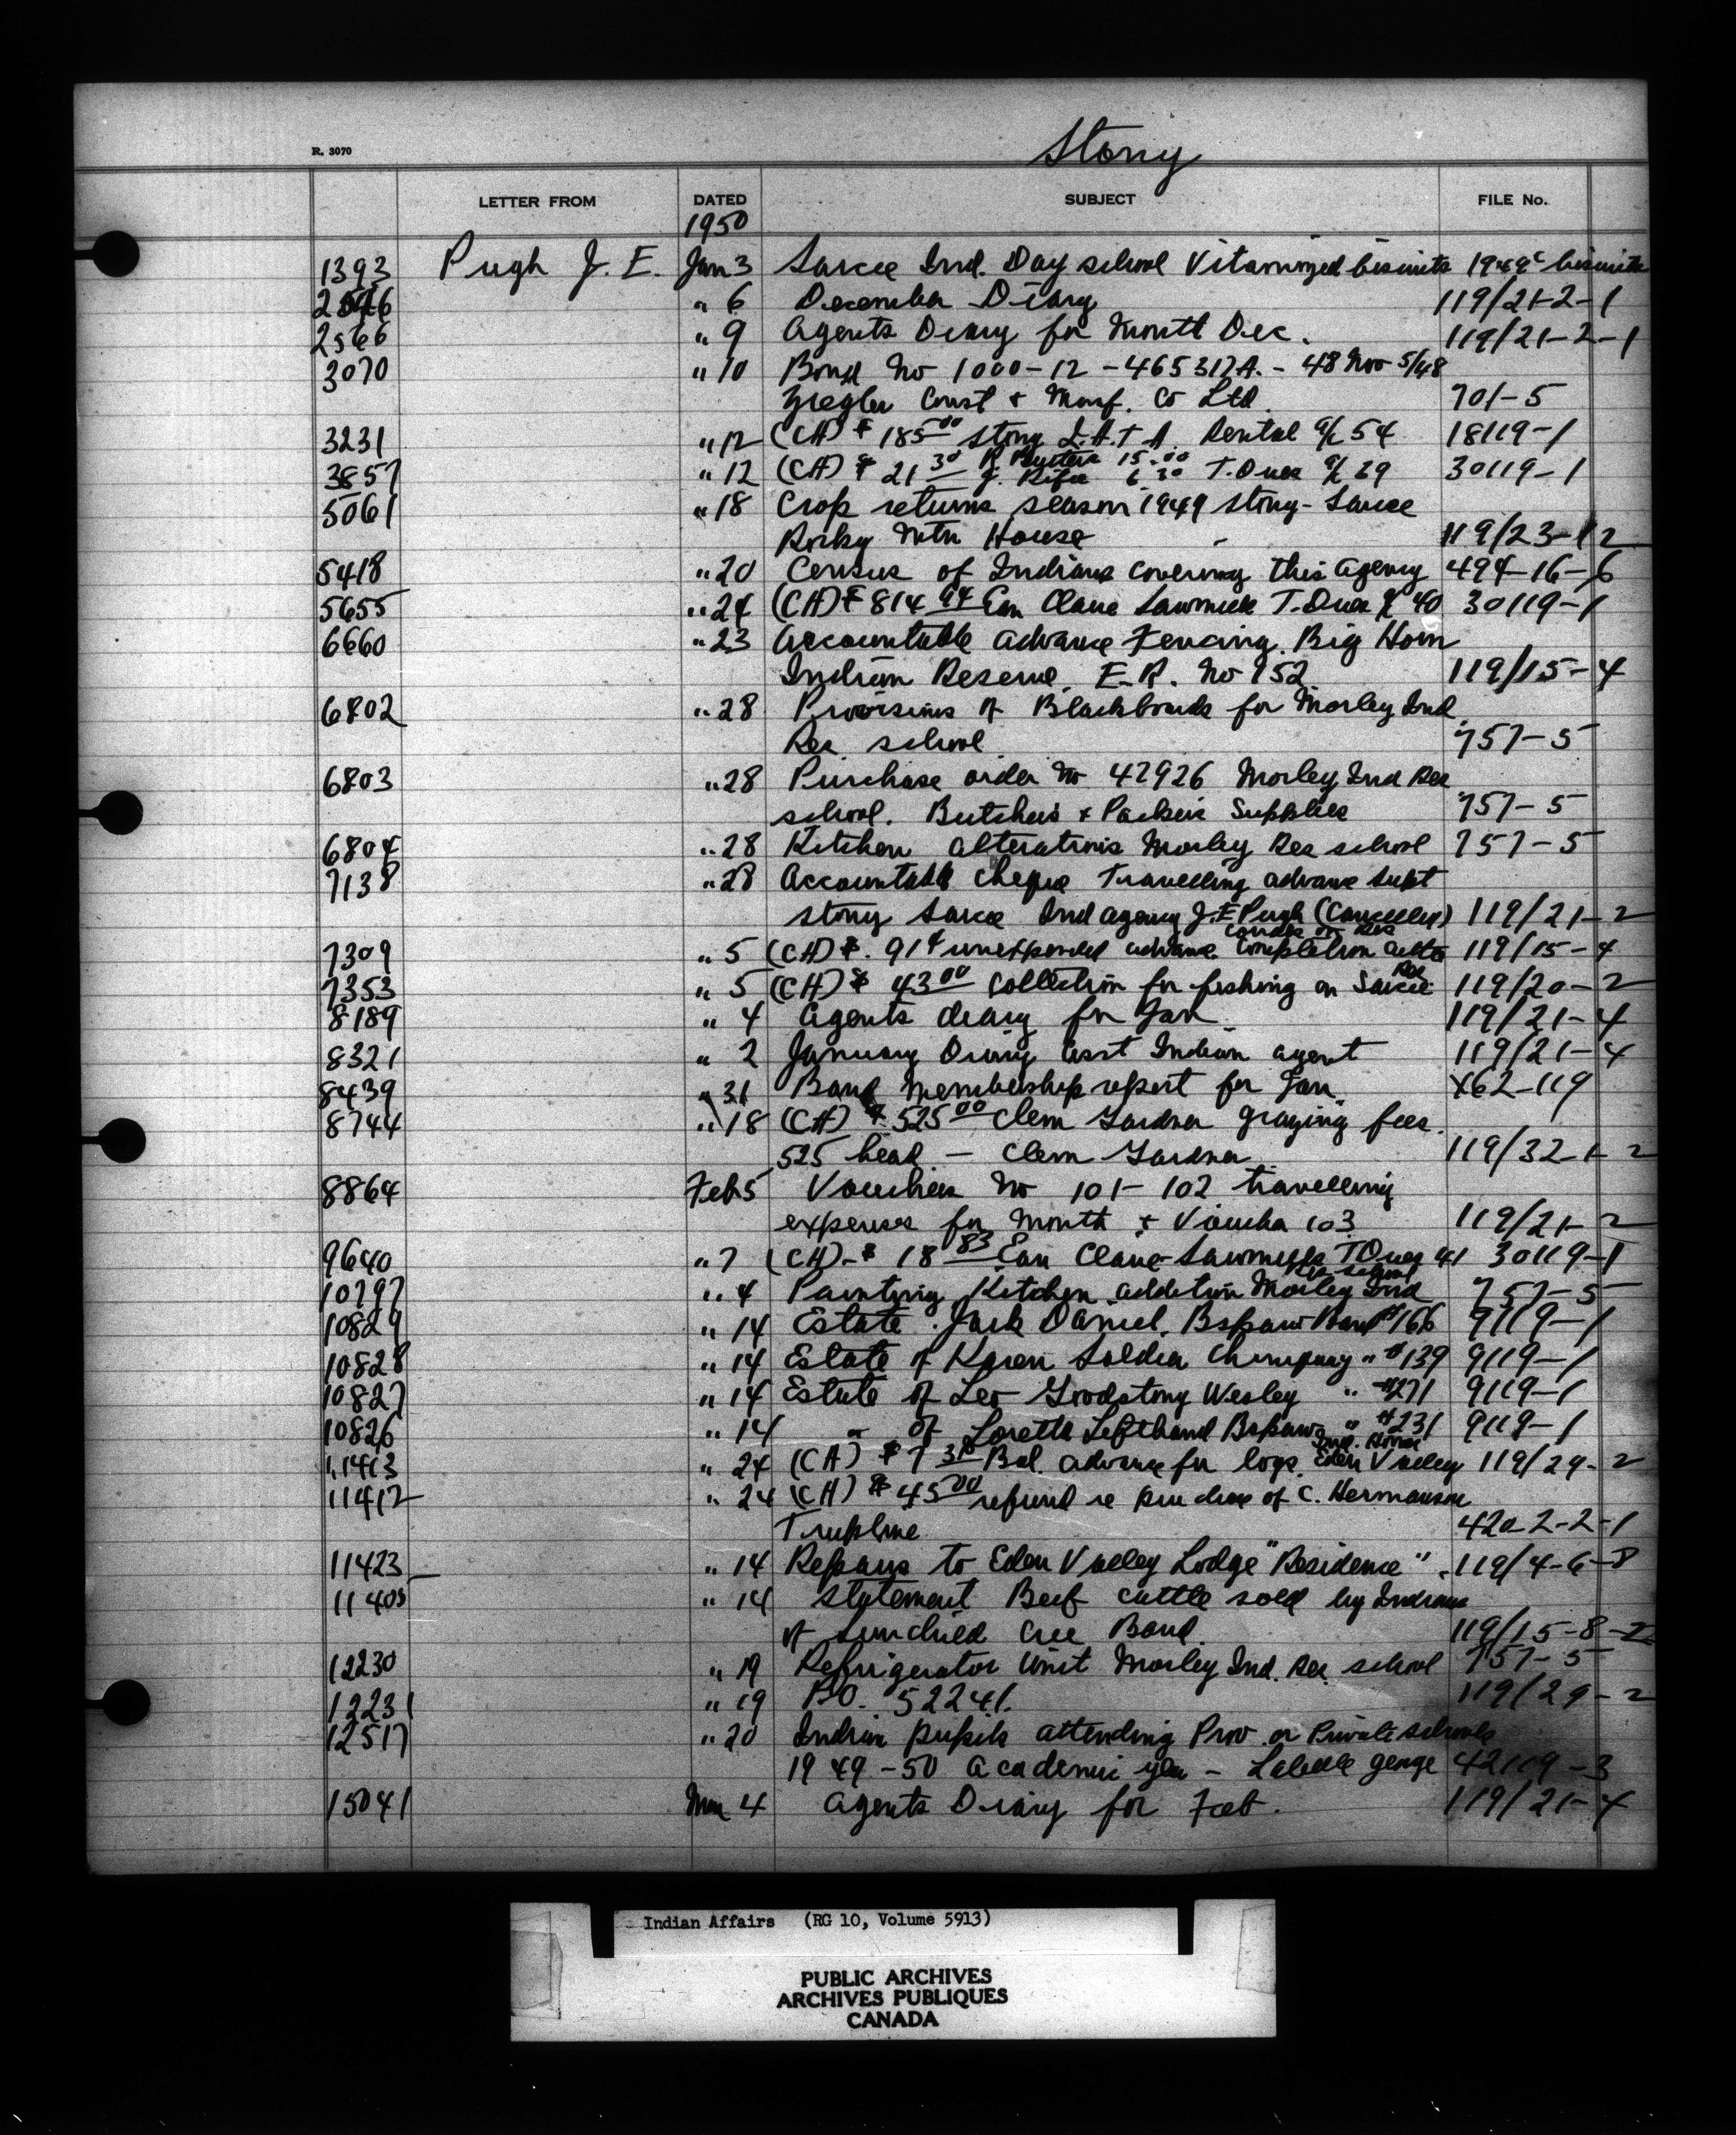 Stony
R. 3070
LETTER FROM DATED SUBJECT FILE No.
1950
1393 Pugh J. E. Jan 3 Sarcee Ind. Day school Vitaminized biscuits 1949 biscuits
" 6 December Diary 119/21-2-1
2566 " 9 Agents Diary for Month Dec. 119/21-2-1
3070 " 10 Bond No 1000-12-465317A. - 48 Nov 5/48
Const & Manf. Co Ltd. 701-5
3231 " 12 (CH) $ 185 00 Stony I.A.T.A. Rental a/c 54 18119-1
3857 " 12 (CH) $ 21 30 15.00 6.30 T. Dues a/c 29 30119-1
5061 " 18 Crop returns season 1949 Stony-Sarcee
Rocky Mtn House 119/23-12
5418 " 20 Census of Indians covering this agency 494-16-6
5655 " 24 (CH) $ 814 94 Eau Claire Sawmills T. Dues a/c 40 30119-1
6660 " 23 Accountable advance Fencing. Big Horn
Indian Reserve. E.R. No 152 119/15-4
6802 " 28 Provisions of Blackboards for Morley Ind
Res school 757-5
6803 " 28 Purchase order No 42926 Morley Ind Res
school. Butchers & Packers Supplies 757-5
6804 " 28 Kitchen alterations Morley Res school 757-5
7138 " 28 Accountable cheque Travelling advance Supt
Stony Sarcee Ind agency J.E Pugh (Cancelled) 119/21-2
7309 " 5 (CH) $ .91¢ unexpended advance. Completion on Res 119/15-4
7353 " 5 (CH) $ 43 00 Collection for fishing on Sarcee Res 119/20-2
8189 " 4 Agents diary for Jan. 119/21-4
8321 " 2 January Diary Asst Indian agent 119/21-4
8439 " 31 Band Membership report for Jan. X62-119
8744 " 18 (CH) $ 525 00 Clem Gardner grazing fees.
525 head - Clem Gardner 119/32-1-2
8864 Feb 5 Vouchers No 101-102 travelling
expenses for Month & Voucher 103 119/21-2
9640 " 7 (CH) - $ 18 83 Eau Claire Sawmills T Dues 41 30119-1
10797 " 4 Painting Kitchen addition Morley Ind Res school 757-5
10829 " 14 Estate. Jack Daniel. Bspaw Band #166 9119-1
10828 " 14 Estate of Karen Soldier Chiniquay " #139 9119-1
10827 " 14 Estate of Leo Goodstony Wesley " #271 9119-1
10826 " 14 " of Loretta Lefthand Bspaw " #231 9119-1
11413 " 24 (CH) $ 7 Bal. advance for logs. Ind. Homes Eden Valley 119/29-2
11412 " 24 (CH) $ 45 00 refund re purchase of C. Hermanson
Trapline 420-2-2-1
11423 " 14 Repairs to Eden Valley Lodge "Residence" 119/4-6-8
11405 " 14 Statement Beef cattle sold by Indians
of Sunchild Cree Band 119/15-8-2
12230 " 19 Refrigerator unit Morley Ind. Res. school 757-5
12231 " 19 P.O. 52241. 119/29-2
12517 " 20 Indian pupils attending Prov. or Private schools
1949-50 Academic year - Labelle George 42119-3
15041 Mar 4 Agents Diary for Feb. 119/21-4
Indian Affairs (RG 10, Volume 5913)
PUBLIC ARCHIVES
ARCHIVES PUBLIQUES
CANADA